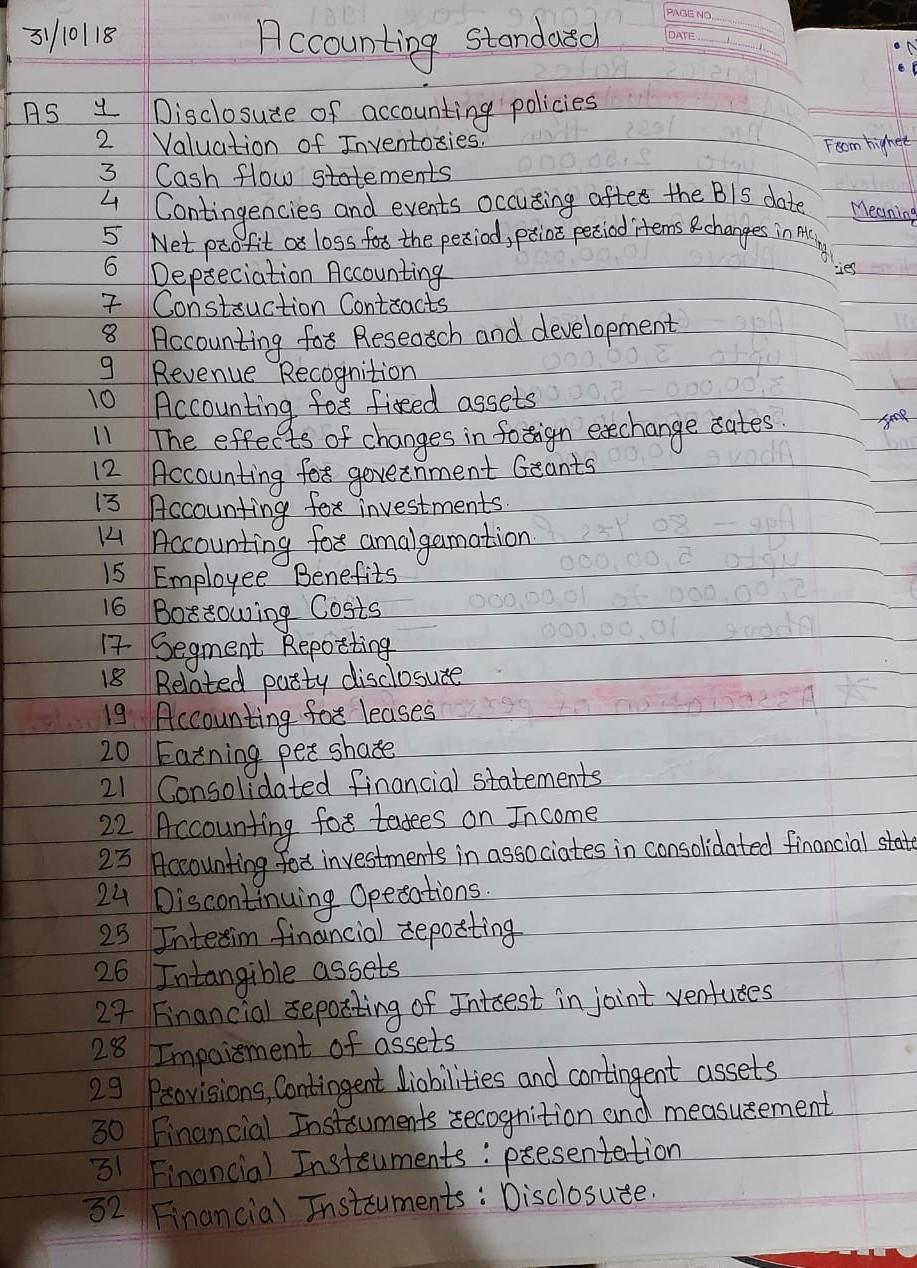 PAGE NO.
DATE
31/10/18 Accounting Standard
AS 1 Disclosure of accounting policies
2 Valuation of Inventories.
3 Cash flow statements
4 Contingencies and events occuring after the B/S date
5 Net profit or loss for the period, prior period items & changes in A/cing
ies
6 Depreciation Accounting
7 Construction Contracts
8 Accounting for Research and development
9 Revenue Recognition
10 Accounting for fixed assets
11 The effects of changes in forign exchange rates.
12 Accounting for government Grants
13 Accounting for investments.
14 Accounting for amalgamation.
15 Employee Benefits
16 Borrowing Costs
17 Segment Reporting
18 Related party disclosure
19 Accounting for leases
20 Earning per share
21 Consolidated financial statements
22 Accounting for taxes on Income
23 Accounting for investments in associates in consolidated financial state
24 Discontinuing Operations.
25 Interim financial reporting
26 Intangible assets
27 Financial reporting of Intrest in joint ventures
28 Impairment of assets
29 Provisions, Contingent liabilities and contingent assets
30 Financial Instruments recognition and measurement
31 Financial Instruments : presentation
32 Financial Instruments : Disclosure.
From higher
Meaning